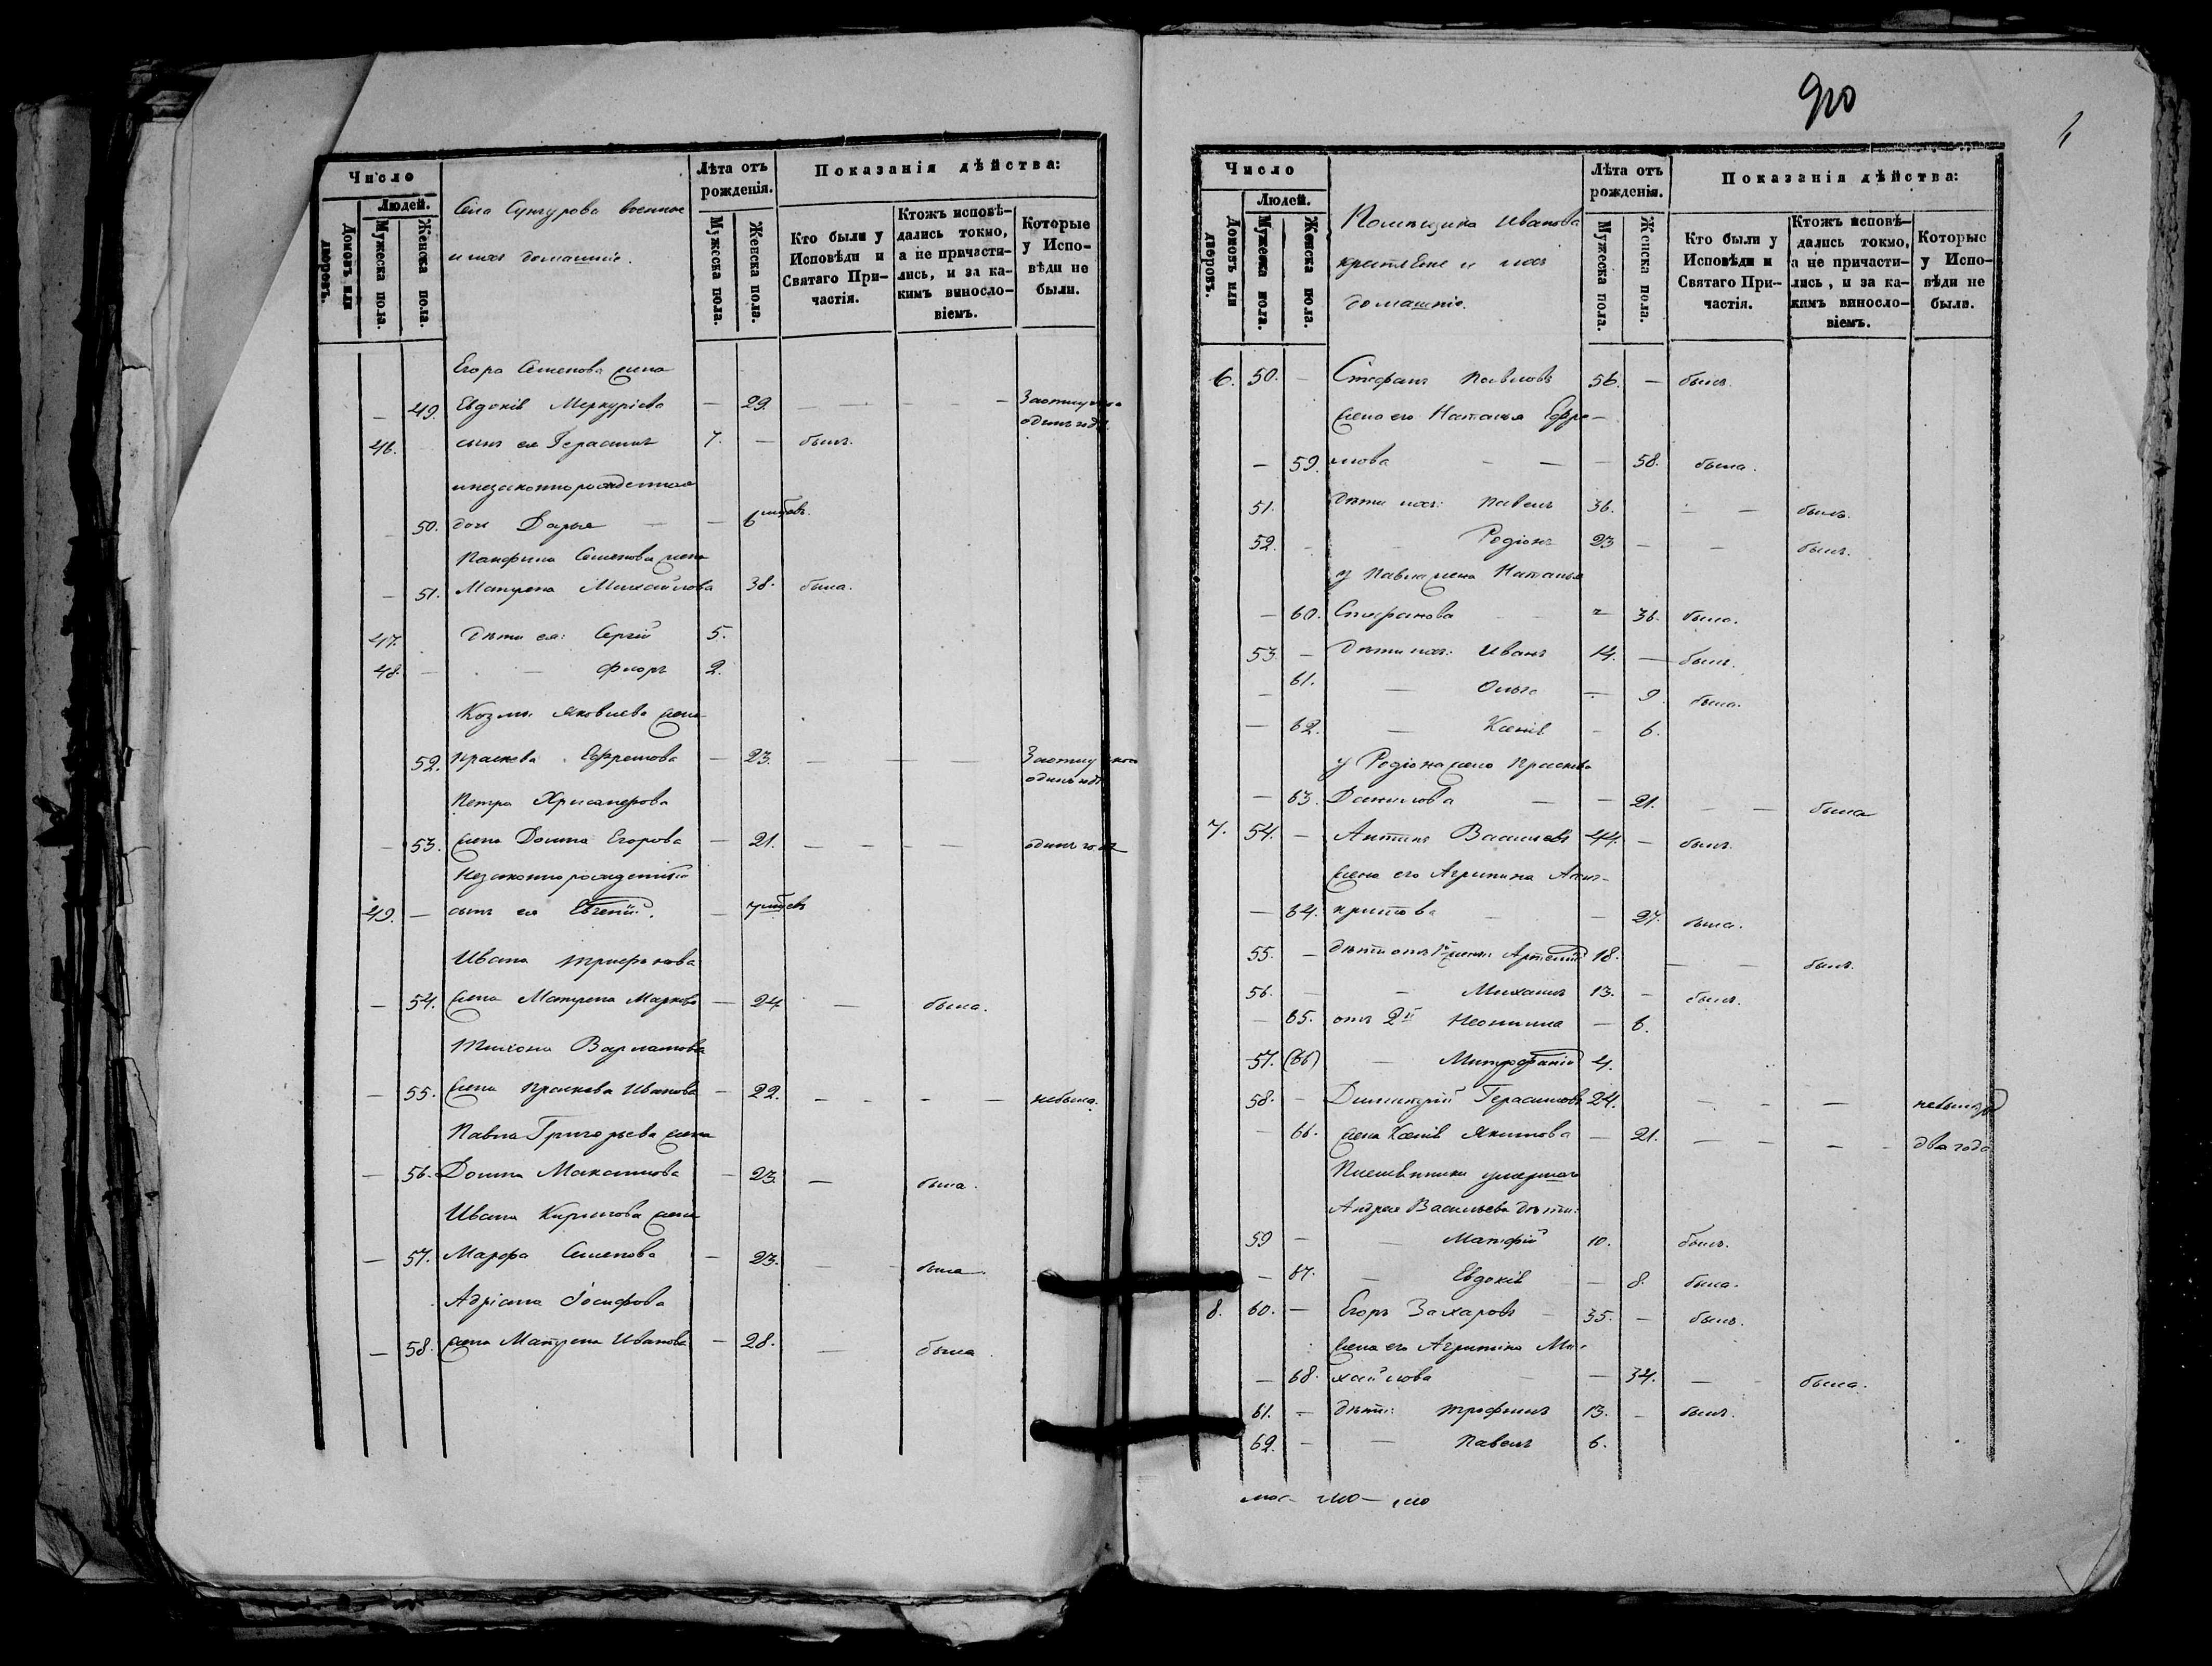 Число
Домовъ или дворовъ.
Людей.
Мужеска пола.
Женска пола.
Села Сунгурова военные
и ихъ домашніе.
Лѣта отъ рожденія.
Мужеска пола.
Женска пола.
Показанія дѣйства:
Кто были у Исповѣди и Святаго Причастія.
Ктожъ исповѣдались токмо, а не причастились, и за какимъ винословіемъ.
Которые у Исповѣди не были.
Егора Семенова жена
49. Евдокія Меркуріева — 29. — — — — — одинъ годъ
46. сынъ ея Герасимъ 7. — былъ.
и незаконнорожденная
— 50. дочь Дарья — — 6
Панфила Семенова жена
— 51. Матрена Михайлова 38. была.
47. Дѣти ея: Сергій 5.
48. — — Флоръ 2.
Козмы Яковлева жена
52. Праскева Ефремова — 23. — — —
одинъ годъ
Петра Хрисанфова
— 53. жена Домна Егорова — 21. — — — — одинъ годъ
Незаконнорожденный
49. — сынъ ея Евгеній. — 7
Ивана Трифонова
— 54. жена Матрена Маркова — 24 — была.
Тихона Варламова
— 55. жена Праскева Иванова — 22. — — — — небыла.
Павла Григорьева жена
— 56. Домна Максимова — 23. — была.
Ивана Кирилова жена
— 57. Марфа Семенова — 23. — — была.
Адріана Іосифова
— 58. жена Матрена Иванова — 28. — была.
920
Число
Домовъ или дворовъ.
Людей.
Мужеска пола.
Женска пола.
Помѣщика Иванова
крестьяне и ихъ
домашніе.
Лѣта отъ рожденія.
Мужеска пола.
Женска пола.
Показанія дѣйства:
Кто были у Исповѣди и Святаго Причастія.
Ктожъ исповѣдались токмо, а не причастились, и за какимъ винословіемъ.
Которые у Исповѣди не были.
6. 50. — Стефанъ Павловъ 56. — былъ.
жена его Наталья Ефре-
— 59. мова — — — 58. была.
51. дѣти ихъ: Павелъ 36. — — былъ.
52. — — Родіонъ 23 — — былъ.
у Павла жена Наталья
— 60. Стефанова — 36. была.
53. — дѣти ихъ: Иванъ 14. — былъ.
— 61. — Ольга — 9. была.
— 62. — Ксенія — 6.
у Родіона жена Праскева
— 63. Данилова — — 21. — — была
7. 54. — Антипъ Васильевъ 44. — былъ.
жена его Агрипина
— 64. — — 27. была.
55. — дѣти отъ 1й жены: Артемій 18. — — былъ.
56. — — Михаилъ 13. — былъ.
— 65. отъ 2й Неонилла — 6.
57. (66) — Митрофаній 4.
58. — Димитрій Герасимовъ 24. — — —
— 66. жена Ксенія Якимова — 21. — — — — два года
Племянники умершаго
Андрея Васильева дѣти:
59 — — Матфій 10. былъ.
— 67. — Евдокія — 8. была.
8. 60. — Егоръ Захаровъ — 35. — былъ.
жена его Агрипина Ми-
— 68. хайлова — — 34. — — была.
61. — дѣти: Трофимъ 13. — былъ.
62. — — Павелъ 6.